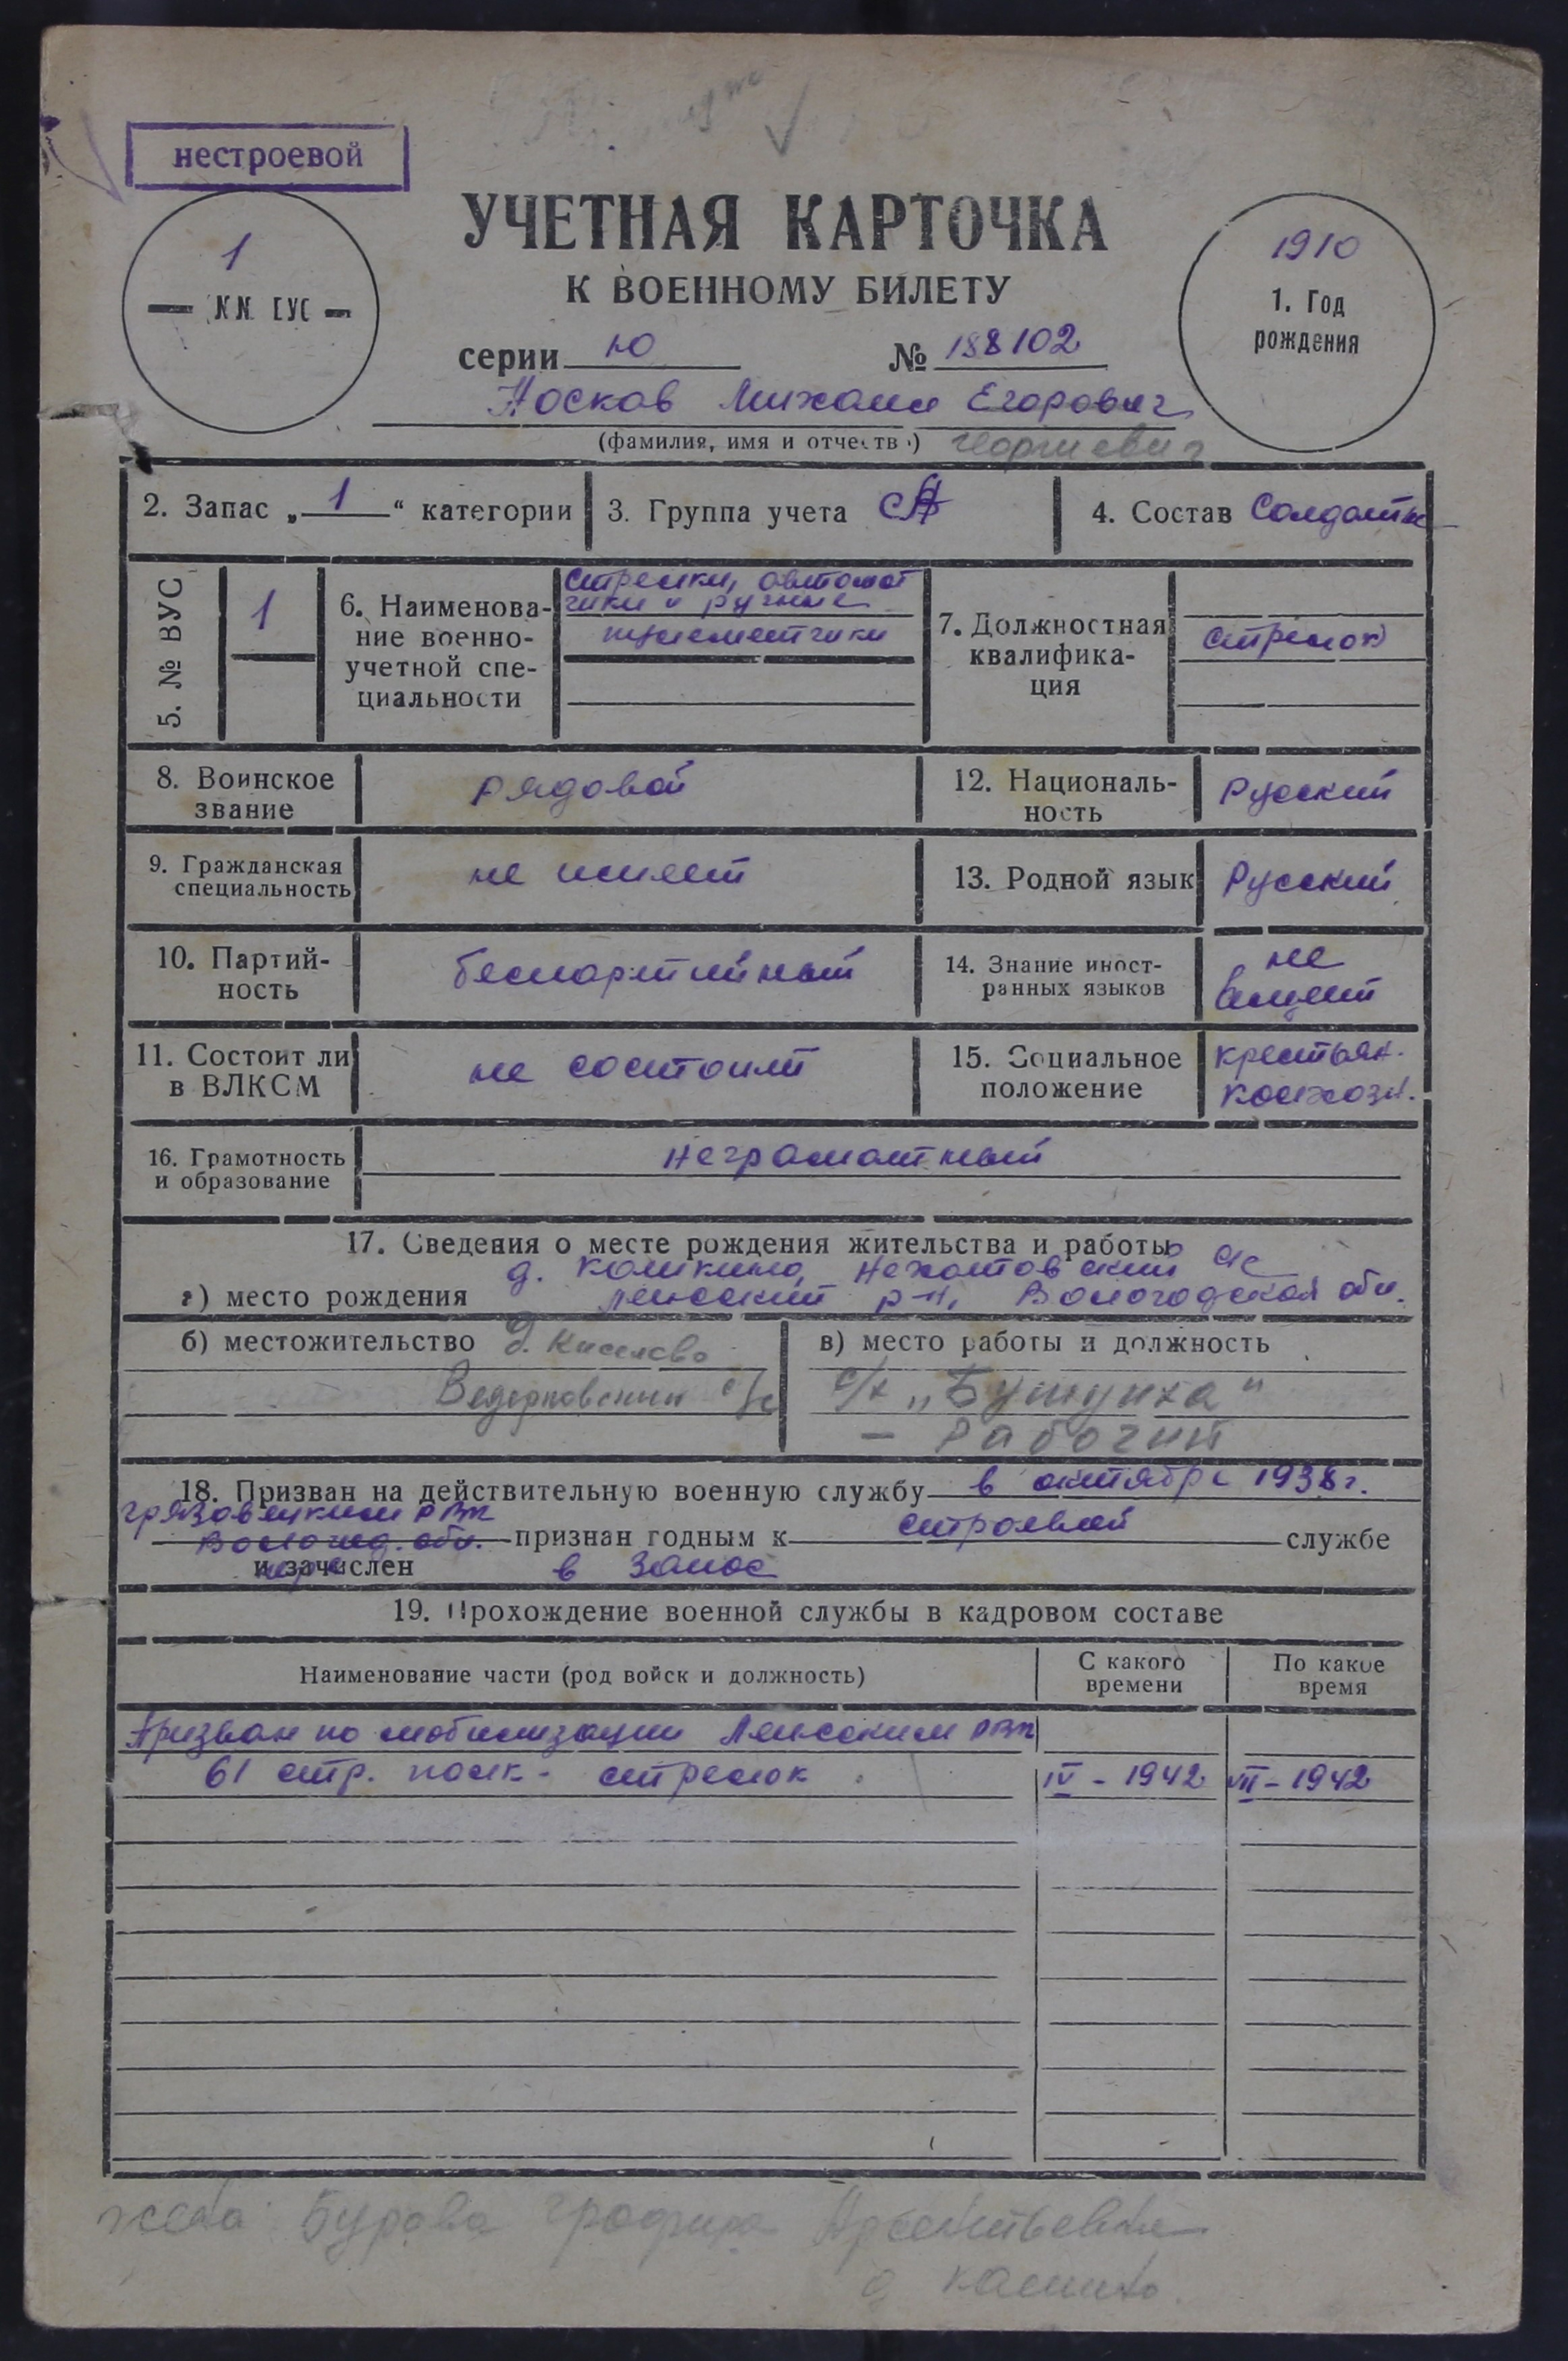 нестроевой
1
№№ ВУС
УЧЕТНАЯ КАРТОЧКА
К ВОЕННОМУ БИЛЕТУ
серии Ю № 188102
1910
1. Год
рождения
Носков Михаил Егорович
(фамилия, имя и отчество) Георгиевич
2. Запас „1“ категории
3. Группа учета СА
4. Состав Солдаты
5. № ВУС
1
6. Наименова-
ние военно-
учетной спе-
циальности
Стрелки, автомат
чики и ручные
пулеметчики
7. Должностная
квалифика-
ция
стрелок
8. Воинское
звание
рядовой
12. Националь-
ность
Русский
9. Гражданская
специальность
не имеет
13. Родной язык
Русский
10. Партий-
ность
беспартийный
14. Знание иност-
ранных языков
не
владеет
11. Состоит ли
в ВЛКСМ
не состоит
15. Социальное
положение
крестьян.
колхозн.
16. Грамотность
и образование
неграмотный
17. Сведения о месте рождения жительства и работы
д. Коликино, с/с
а) место рождения р-н, Вологодская обл.
б) местожительство д. Киселево
Ведерковский с/с
в) место работы и должность
с/х „Бушуиха“
– Рабочий
18. Призван на действительную военную службу в октябре 1938 г.
Грязовецким РВК
Вологод. обл. признан годным к строевой службе
и зачислен в запас
19. Прохождение военной службы в кадровом составе
Наименование части (род войск и должность)
С какого
времени
По какое
время
Призван по мобилизации РВК
61 стр. полк - стрелок IV - 1942 VII - 1942
жена Бурова Арсентьевна
д.